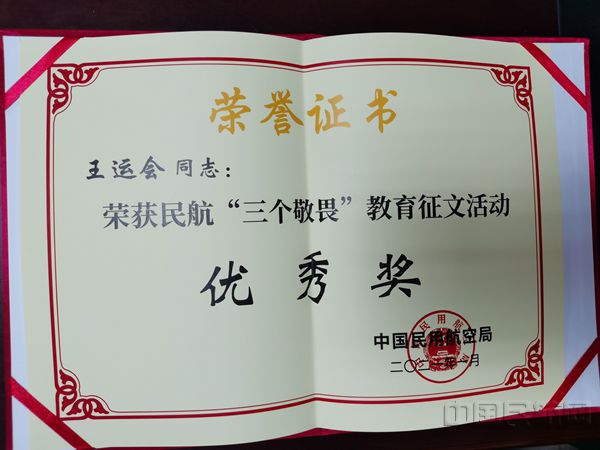 荣誉证书
王运会 同志：
荣获民航“三个敬畏”教育征文活动
优秀奖
中国民用航空局
二〇二一年一月
中国民航网